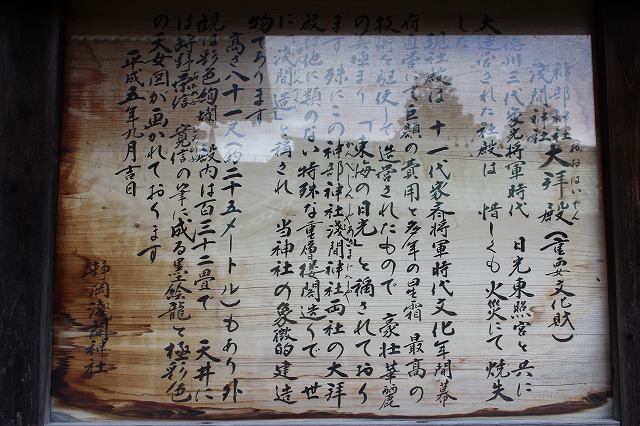 神部神社
浅間神社
大拝殿(重要文化財)
おおはいでん
徳川三代家光将軍時代 日光東照宮と共に
大造営された社殿は 惜しくも火災にて焼失
した
現社殿は 十一代家斉将軍時代文化年間幕
府直営にて巨額の費用と多年の星霜 最高の
技術を駆使して造営されたもので 豪壮華麗
の美極まり「東海の日光」と稱されており
ます 殊にこの神部神社浅間神社両社の大拝
殿は他に類のない特殊な重層楼閣造りで 世
に「浅間造」と稱され 当神社の象徴的建造
物であります
高さ八十一尺(約二十五メートル)もあり外
観は彩色絢爛 殿内は百三十二畳で 天井に
は狩野栄信 寛信の筆に成る墨絵龍と極彩色
の天女図が画かれております
平成五年九月吉日
静岡浅間神社